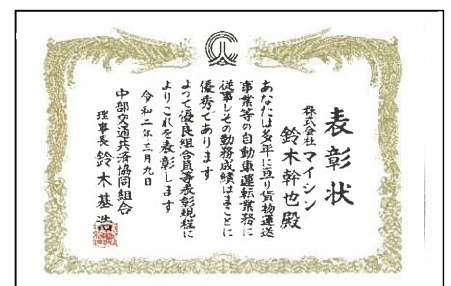 表彰状
株式会社マイシン
鈴木幹也殿
あなたは多年に亘り貨物運送
事業等の自動車運転業務に
従事しその勤務成績はまことに
優秀であります
よつて優良組合員等表彰規程に
よりこれを表彰します
令和二年三月九日
中部交通共済協同組合
理事長 鈴木基浩